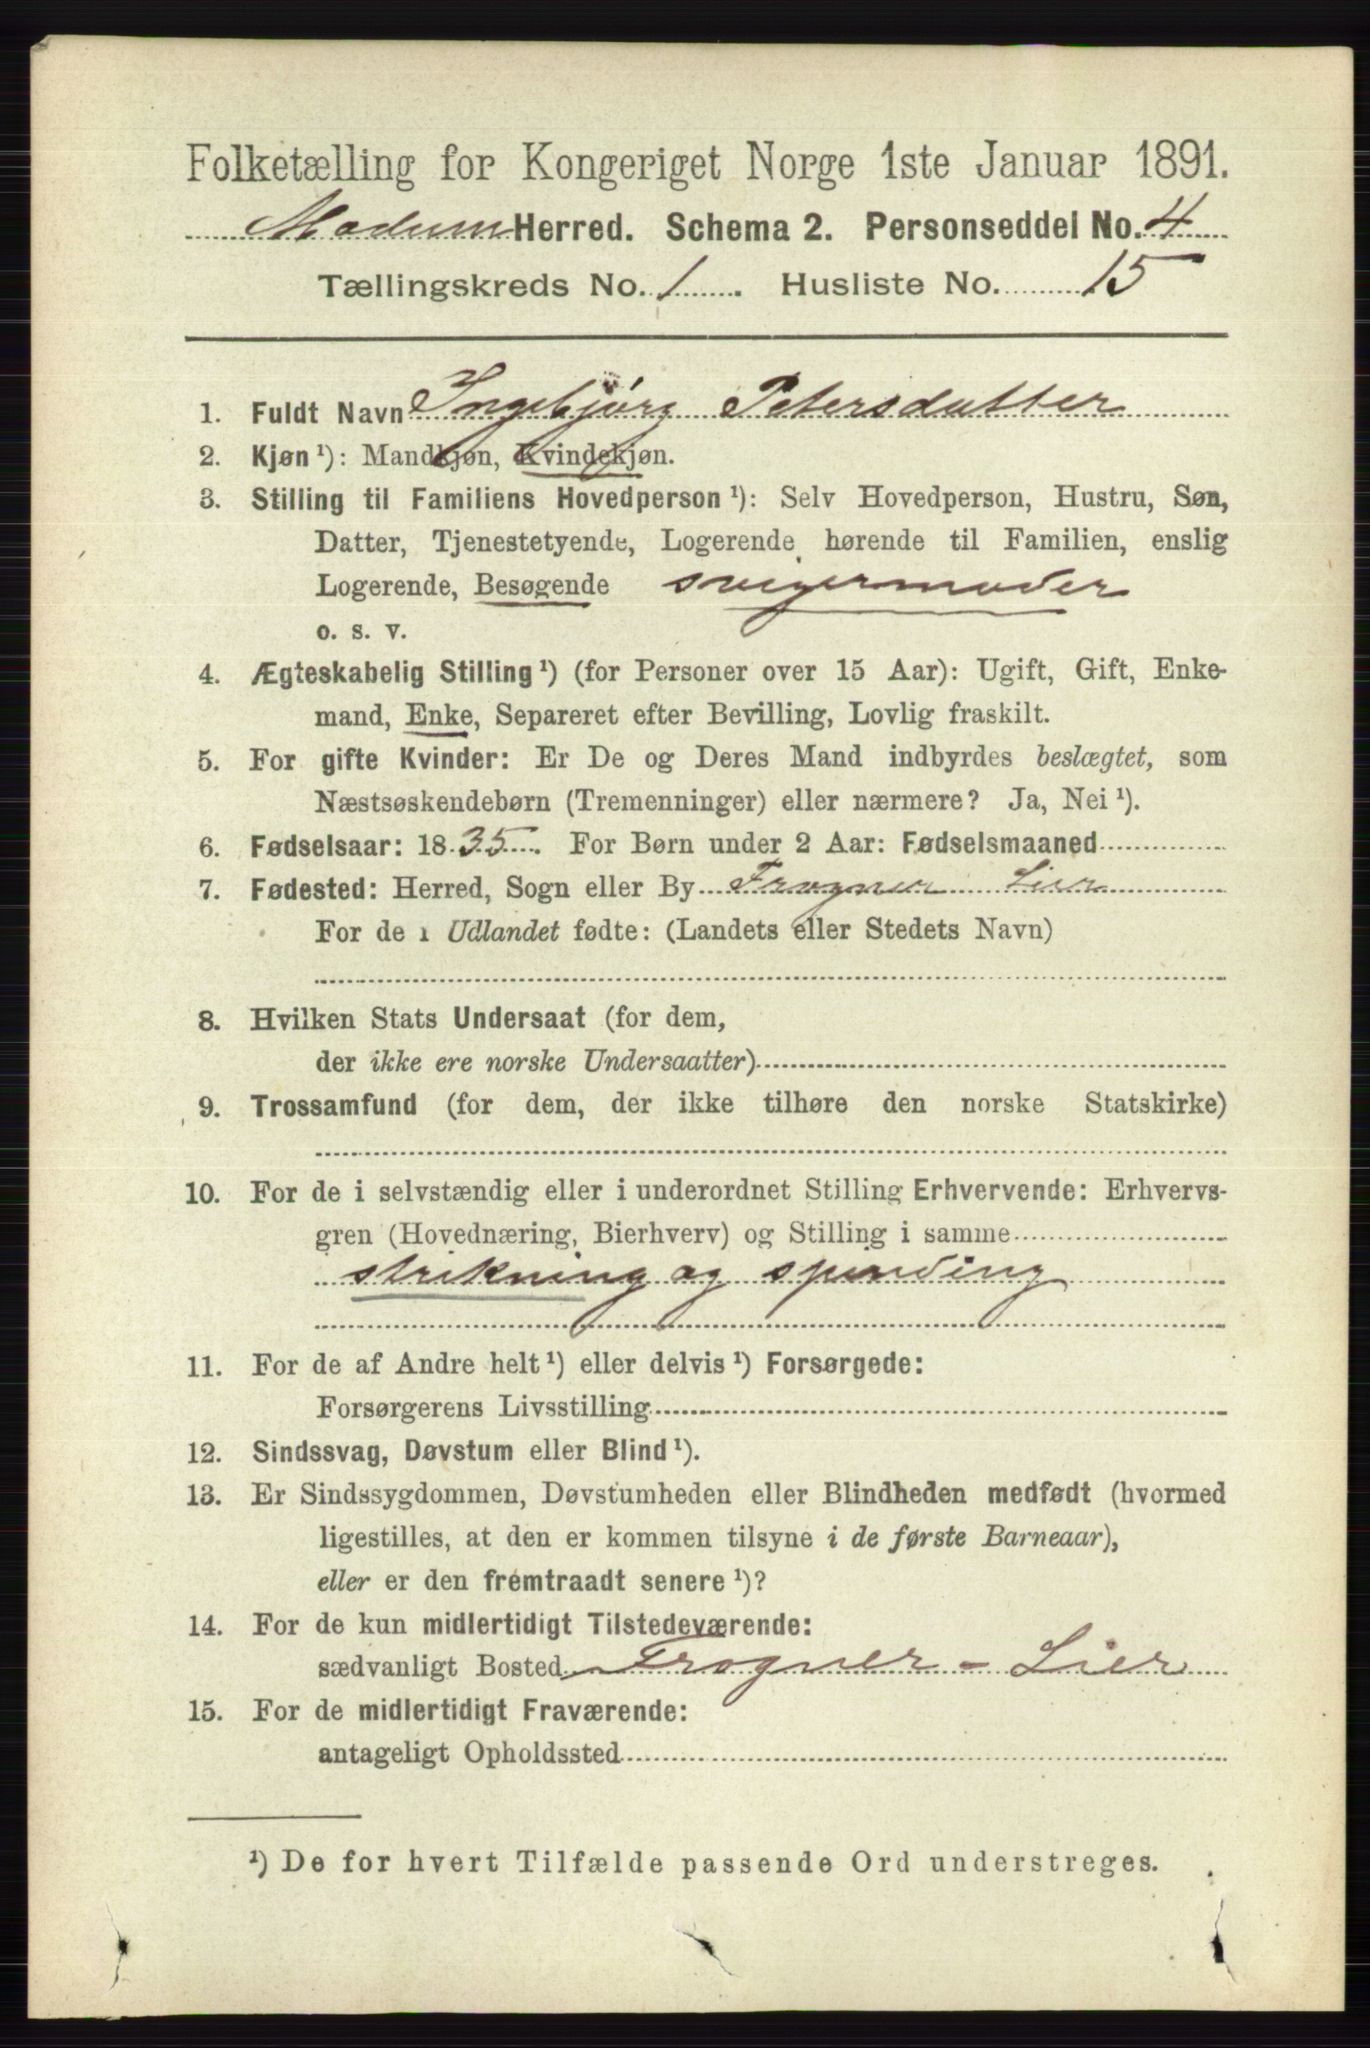 Folketælling for Kongeriget Norge 1ste Januar 1891.
Modum Herred. Schema 2. Personseddel No. 4
Tællingskreds No. 1. Husliste No. 15
1. Fuldt Navn Ingebjørg Petersdatter
2. Kjøn ¹): Mandkjøn, Kvindekjøn.
3. Stilling til Familiens Hovedperson ¹): Selv Hovedperson, Hustru, Søn,
Datter, Tjenestetyende, Logerende hørende til Familien, enslig
Logerende, Besøgende svigermoder
o. s. v.
4. Ægteskabelig Stilling ¹) (for Personer over 15 Aar): Ugift, Gift, Enke-
mand, Enke, Separeret efter Bevilling, Lovlig fraskilt.
5. For gifte Kvinder: Er De og Deres Mand indbyrdes beslægtet, som
Næstsøskendebørn (Tremenninger) eller nærmere? Ja, Nei ¹).
6. Fødselsaar: 1835. For Børn under 2 Aar: Fødselsmaaned
7. Fødested: Herred, Sogn eller By Frogner Lier
For de i Udlandet fødte: (Landets eller Stedets Navn)
8. Hvilken Stats Undersaat (for dem,
der ikke ere norske Undersaatter)
9. Trossamfund (for dem, der ikke tilhøre den norske Statskirke)
10. For de i selvstændig eller i underordnet Stilling Erhvervende: Erhvervs-
gren (Hovednæring, Bierhverv) og Stilling i samme
strikning og spinding
11. For de af Andre helt ¹) eller delvis ¹) Forsørgede:
Forsørgerens Livsstilling
12. Sindssvag, Døvstum eller Blind ¹).
13. Er Sindssygdommen, Døvstumheden eller Blindheden medfødt (hvormed
ligestilles, at den er kommen tilsyne i de første Barneaar),
eller er den fremtraadt senere ¹)?
14. For de kun midlertidigt Tilstedeværende:
sædvanligt Bosted Frogner - Lier
15. For de midlertidigt Fraværende:
antageligt Opholdssted
¹) De for hvert Tilfælde passende Ord understreges.